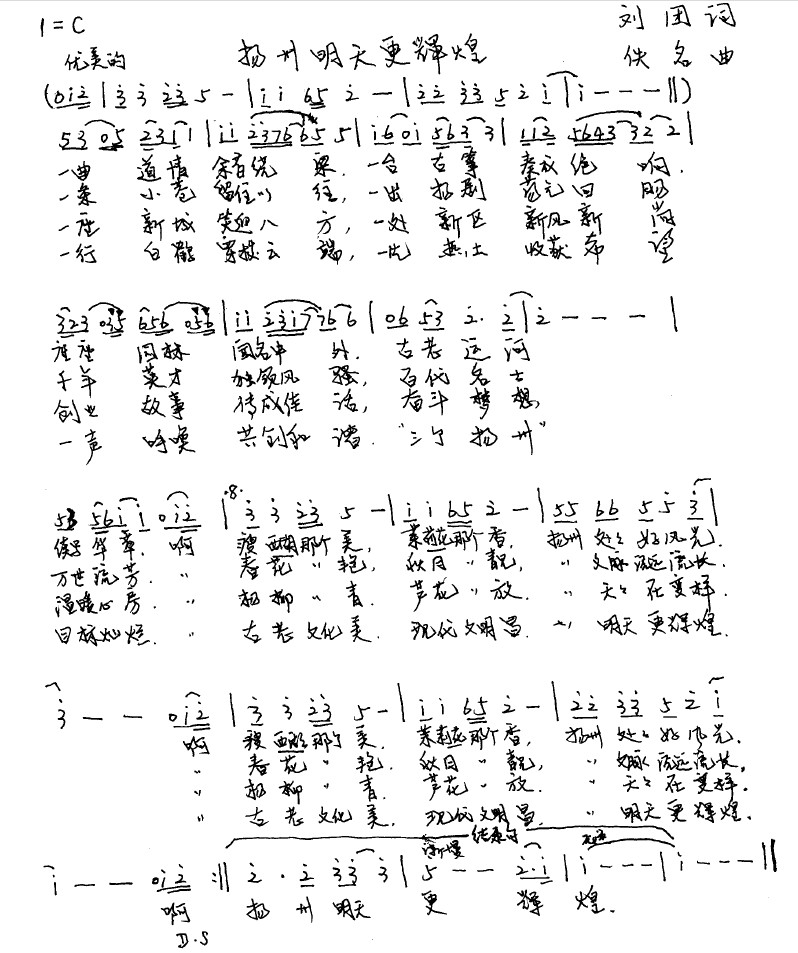 1=C
刘团词
优美的 扬州明天更辉煌 佚名曲
(0 i 2 | 3 3 2 3 5 - | i i 6 5 2 - | 2 2 3 3 5 2 i | i - - - ||)
5 3 0 5 2 3 i i | i i 2 3 7 6 6 5 5 | i 6 0 i 5 6 3 3 | i i 2 5 6 4 3 3 2 2 |
一曲 道情 余音绕 梁. 一台 古筝 奏放 绝 响.
一条 小巷 留住 往, 一出 扬剧 回 肠
一座 新城 笑迎八 方, 一处 新区 新风新 尚
一行 白鹤 穿梭云 端, 一片 热土 收获希 望
3 2 3 0 3 5 6 5 6 0 5 6 | i i 2 3 i 7 7 6 6 | 0 6 5 3 2 · 2 | 2 - - - |
座座 园林 闻名中 外. 古老 运河
千年 英才 独领风 骚, 百代 名士
创业 故事 传成佳 话, 奋斗 梦想,
一声 呼唤 共创和 谐. "三个 扬州"
5 3 5 6 i i 0 i 2 | 3 3 2 3 5 - | i i 6 5 2 - | 5 5 6 6 5 5 3 |
续写华章. 啊 瘦西湖那个 美, 茉莉花那个香, 扬州 处处 好风光.
万世流芳. 〃 春花 〃 艳, 秋月 〃 靓, 〃 文脉 流远流长.
温暖心房. 〃 杨柳 〃 青. 芦花 〃 放. 〃 天天 在变样.
目标灿烂. 〃 古老文化 美. 现代文明昌. 〃 明天 更辉煌.
3 - - 0 i 2 | 3 3 2 3 5 - | i i 6 5 2 - | 2 2 3 3 5 2 i
啊 瘦西湖那个 美. 茉莉花那个香, 扬州 处处 好风光.
〃 春花 〃 艳. 秋月 〃 靓, 〃 文脉 流远流长.
〃 杨柳 〃 青. 芦花 〃 放. 〃 天天 在变样.
〃 古老文化 美. 现代文明昌. 〃 明天更辉煌.
渐慢 结束句
i - - 0 i 2 :|| 2 · 2 3 3 3 | 5 - - 2 · i | i - - - | i - - - ||
啊 扬 州 明天 更 辉 煌.
D.S